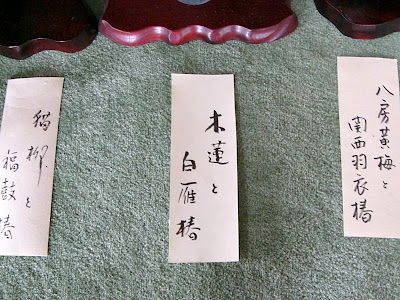 八房黄梅と
関西羽衣椿
木蓮と
白雁椿
猫柳と
福鼓椿